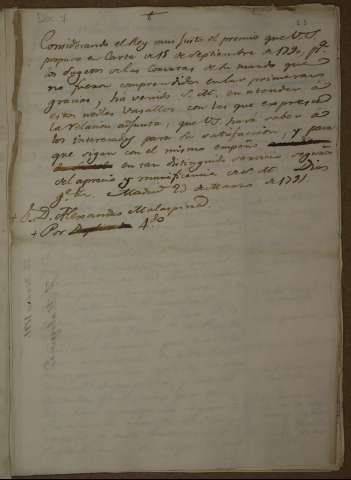 Doc 7
+
Considerando el Rey muy justo el premio que V.S.
propuso en Carta de 18 de Septiembre de 1790, pª.
los sugetos de las Corvetas de su mando que
no fueron comprendidos en las primeras
gracias; ha venido S. M. en atender á
esos utiles Vasallos con los que expresa
la relacion adjunta, que V.S. hará saber á
los interesados para su satisfaccion, y para
que sigan con el mismo empeño
en tan distinguido servicio seguros
del aprecio y munificencia de S. M. Dios
gue. &a. Madrid 23 de Marzo de 1791
+ S. D. Alexandro Malaspina.
+ Por 4do